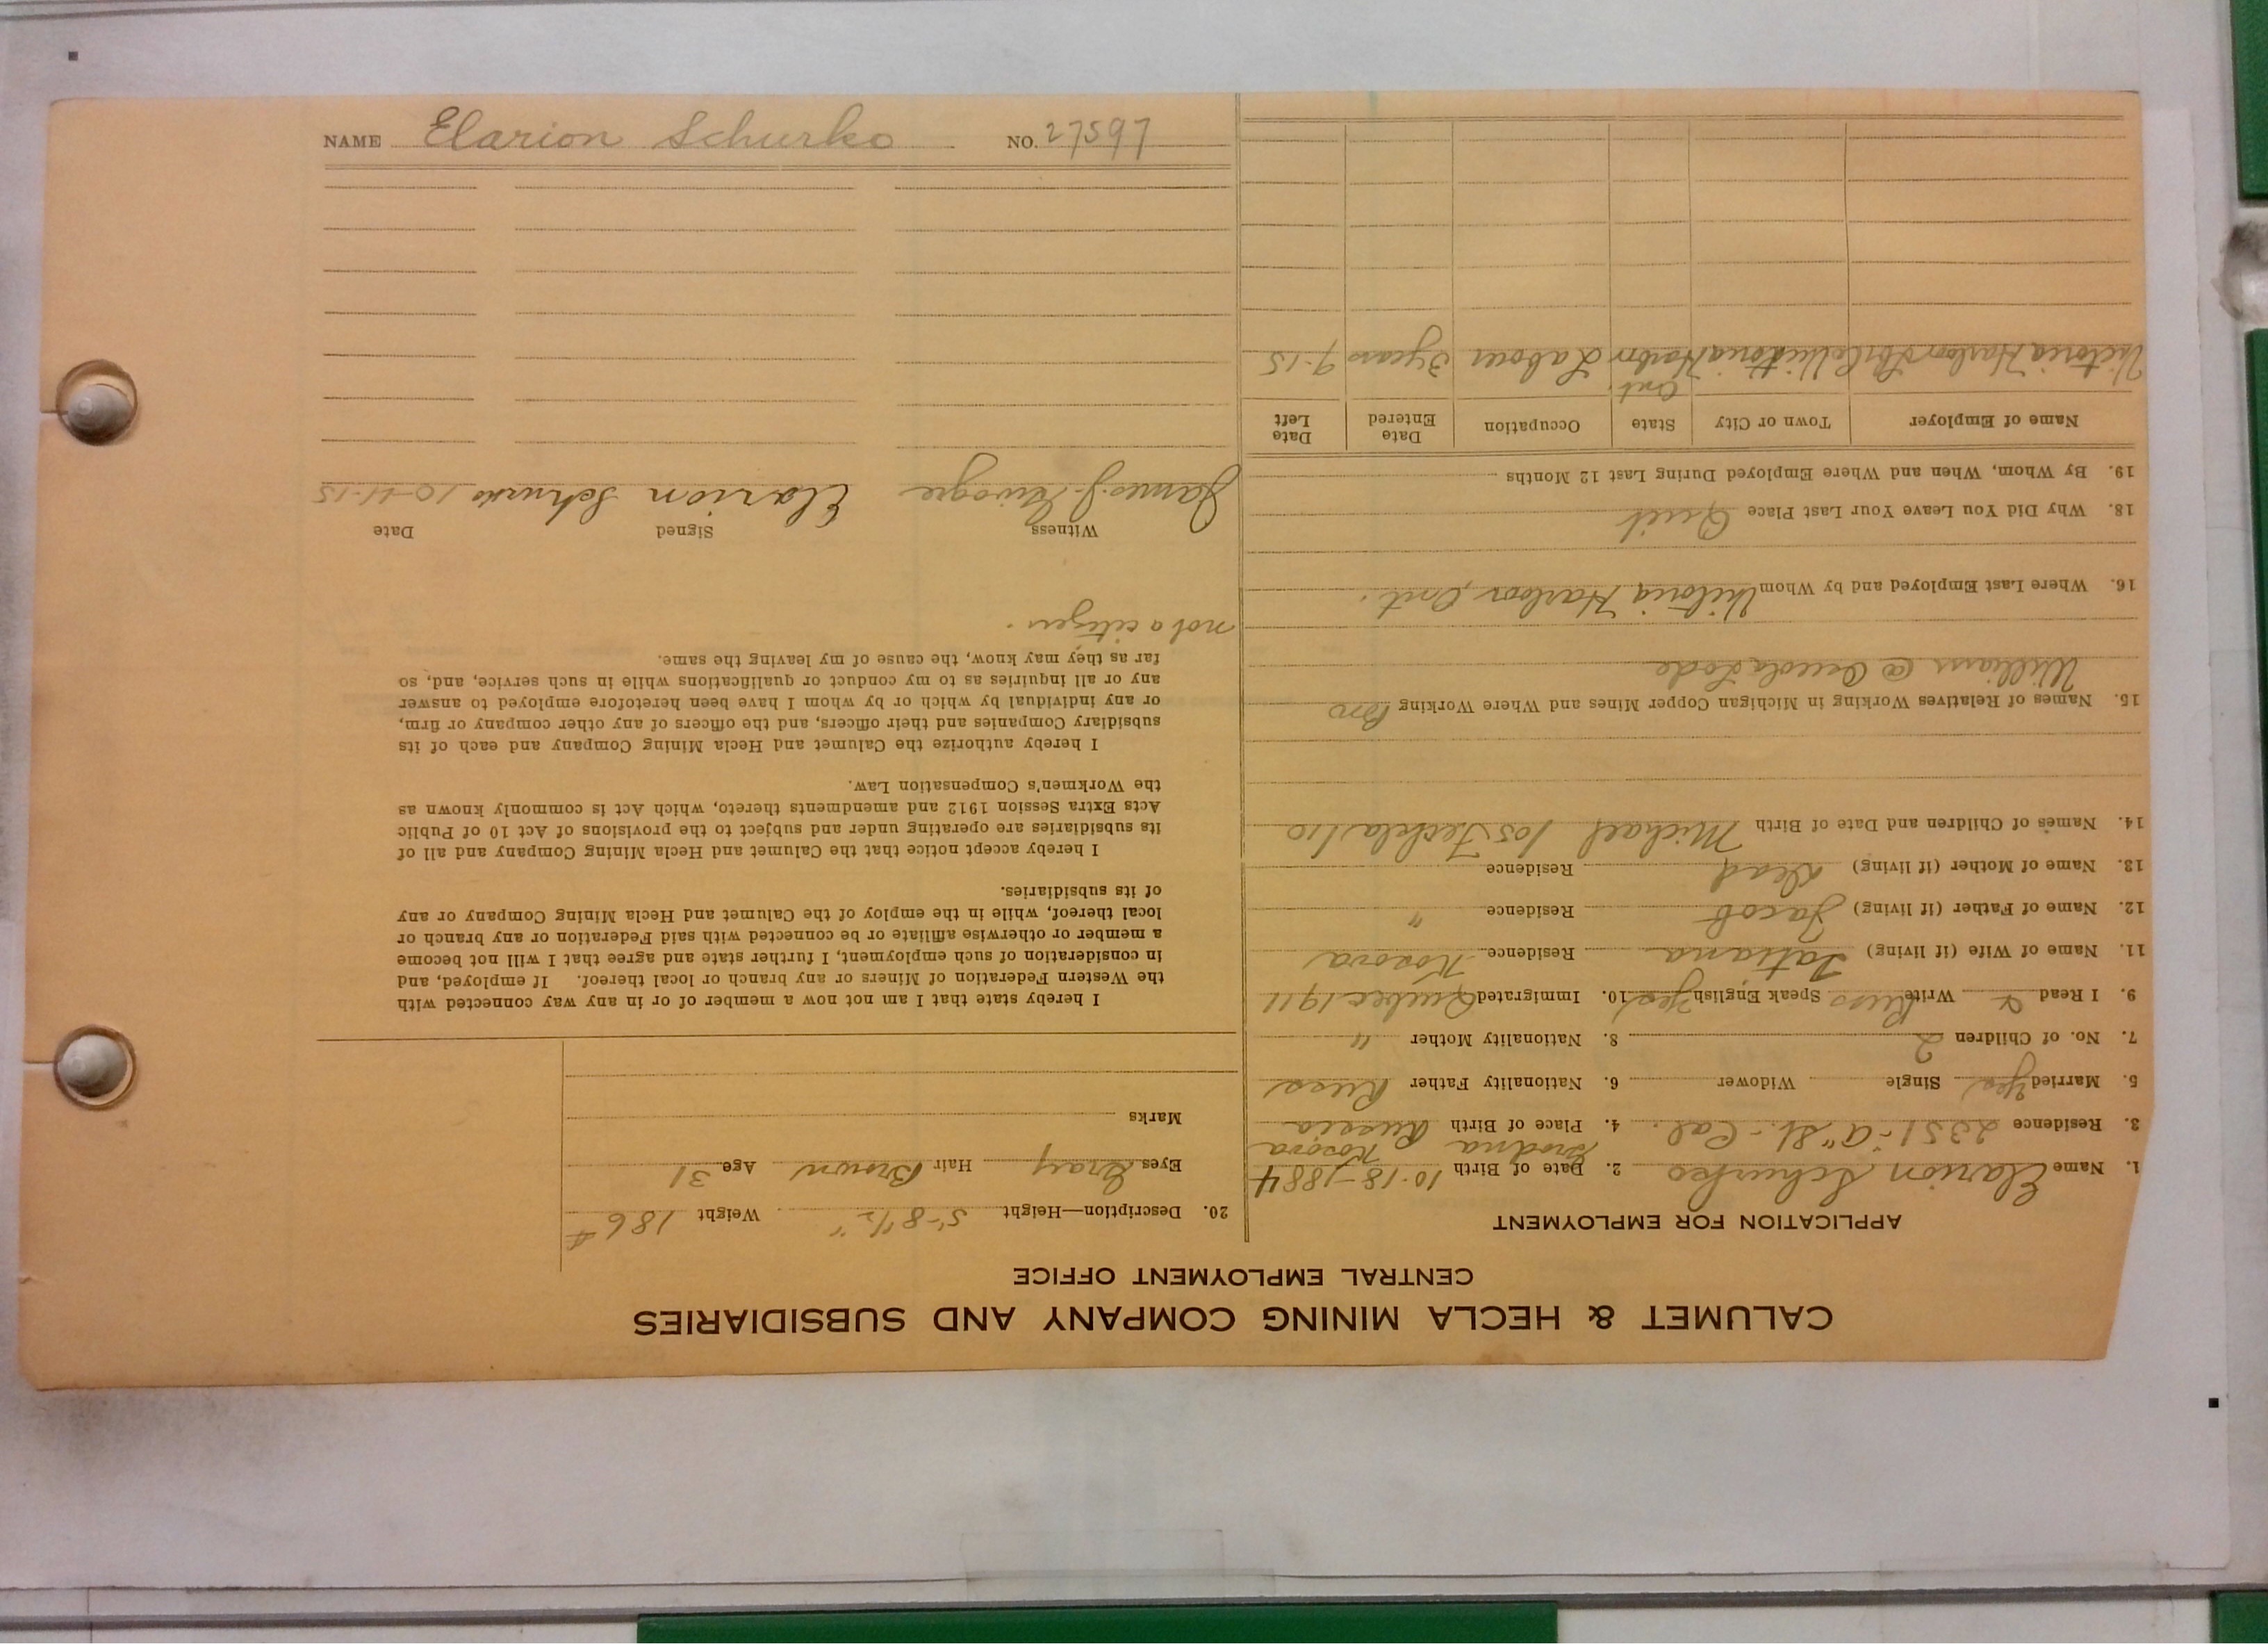 CALUMET & HECLA MINING COMPANY AND SUBSIDIARIES
CENTRAL EMPLOYMENT OFFICE
APPLICATION FOR EMPLOYMENT
1. Name Elarion Schurko 2. Date of Birth 10-18-1884
Grodna Kosova
3. Residence 2351-"A" St.- Cal. 4. Place of Birth Russia
5. Married Yes Single Widower 6. Nationality Father Russ
7. No. of Children 2 8. Nationality Mother "
9. I Read & Write Russ Speak English Yes 10. Immigrated Quebec 1911
11. Name of Wife (if living) Tatiana Residence Kosova
12. Name of Father (if living) Jacob Residence "
13. Name of Mother (if living) Dead Residence
14. Names of Children and Date of Birth Michael /05 Techla /10
15. Names of Relatives Working in Michigan Copper Mines and Where Working Bro
William @ Osceola Lode
16. Where Last Employed and by Whom Victoria Harbor, Ont.
18. Why Did You Leave Your Last Place Quit
19. By Whom, When and Where Employed During Last 12 Months
Name of Employer Town or City State Occupation Date Entered Date Left
Ont.
Victoria Harbor Victoria Harbor Labour 3 years 9-15
20. Description—Height 5'-8 1/2" Weight 186 #
Eyes Gray Hair Brown Age 31
Marks
I hereby state that I am not now a member of or in any way connected with
the Western Federation of Miners or any branch or local thereof. If employed, and
in consideration of such employment, I further state and agree that I will not become
a member or otherwise affiliate or be connected with said Federation or any branch or
local thereof, while in the employ of the Calumet and Hecla Mining Company or any
of its subsidiaries.
I hereby accept notice that the Calumet and Hecla Mining Company and all of
its subsidiaries are operating under and subject to the provisions of Act 10 of Public
Acts Extra Session 1912 and amendments thereto, which Act is commonly known as
the Workmen's Compensation Law.
I hereby authorize the Calumet and Hecla Mining Company and each of its
subsidiary Companies and their officers, and the officers of any other company or firm,
or any individual by which or by whom I have been heretofore employed to answer
any or all inquiries as to my conduct or qualifications while in such service, and, so
far as they may know, the cause of my leaving the same.
not a citizen.
Witness Signed Date
James J. Elarion Schurko 10-11-15
NAME Elarion Schurko NO. 27597